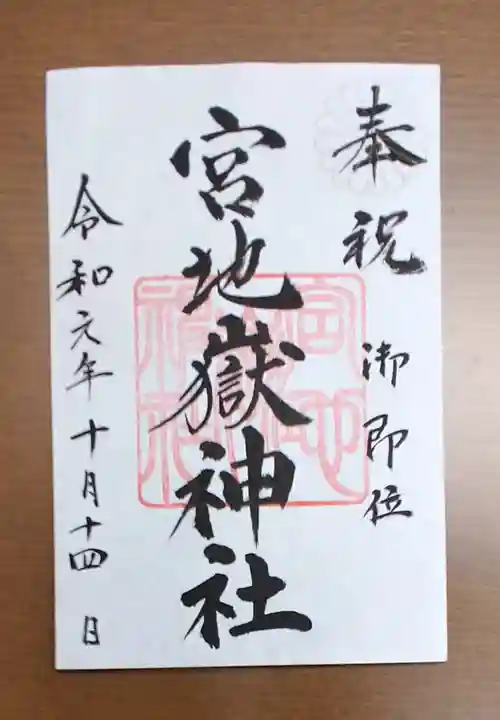 奉祝
御即位
宮地嶽神社
令和元年十月十四日